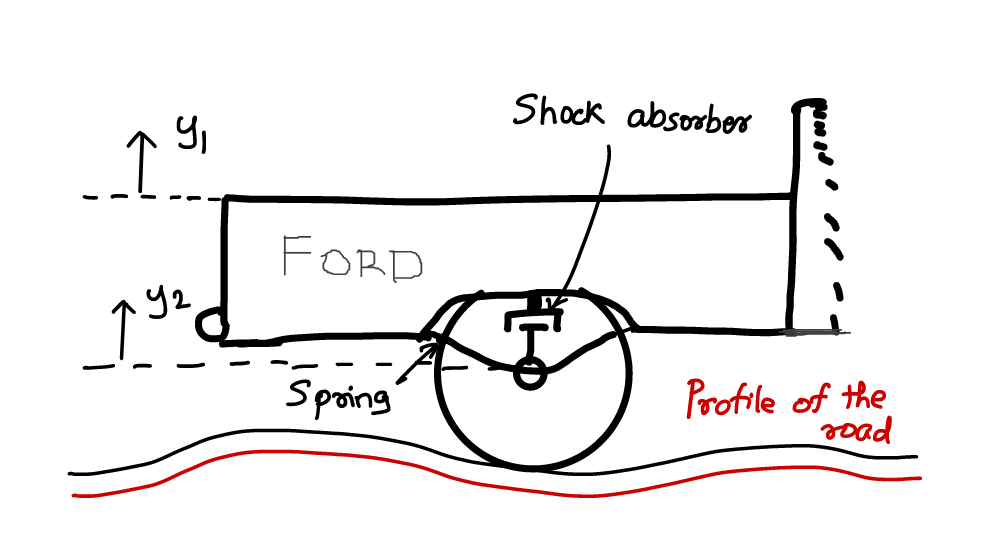 Shock absorber
y1
FORD
y2
Spring
Profile of the
road